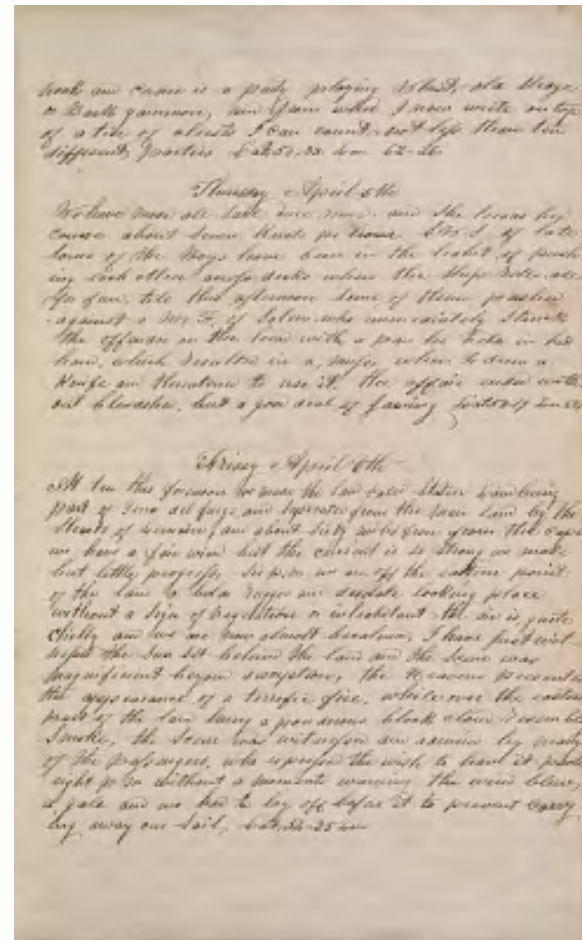 and is a party playing Whist, old sledge
or Back gammon, and from where I now write on top
of a tier of I can count not less than ten
different parties Lat 50, 33 Lon 62-26
Thursday April 5th
We have been all sail and she her
course about seven knots per hour of late
some of the Boys have been in the habit of push
ing each other decks when the ship rolls all
for fun, till this afternoon some of them pushed
against a Mr F. of Salem who immediately struck
the offender on the head with a pan he held in his
hand, which resulted in a when F drew a
Knife and threatened to use it, the affair ended with
out bloodshed, but a good deal of Lat 52-17 Lon
Friday April 6th
At ten this forenoon we made the land called Staten Land being
part of Terra del fuego and separated from the main land by the
Straits of and about sixty miles from the Cape
we have a fair wind but the current is so strong we make
but little progress, six p.m we are off the eastern point
of the land a desolate looking place
without a sign of vegetation or inhabitant the air is quite
chilly and we are now almost becalmed, I have just wit
nessed the sun set behind the land and the scene was
magnificent beyond description, the Heavens presented
the appearance of a terrific fire, while over the eastern
part of the land hung a ponderous black cloud
smoke, the scene was witnessed and admired by many
of the passengers, who expressed the wish to have it
eight p m without a moments warning the wind blew
a gale and we had to lay off before it to prevent carry
ing away our sail, Lat 54-25 Lon